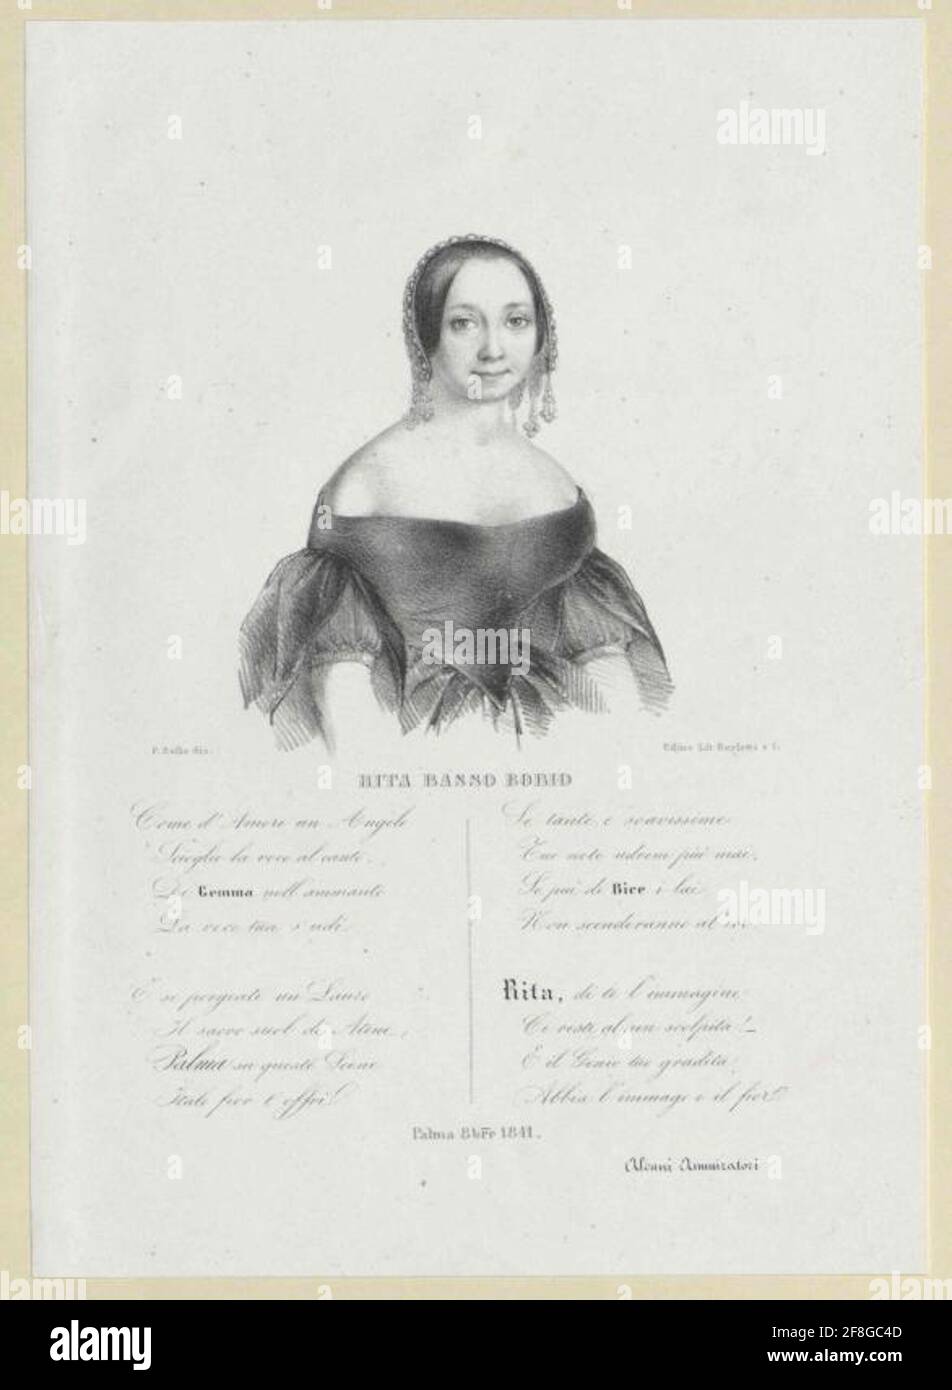 RITA BASSO BORIO
Come d'Amore un Angelo
Scioglie la voce al canto,
Di Gemma nell'ammanto
La voce tua s'udì.
E se porgeate un Lauro
Il sacro suol di Atene,
Palma su queste Scene
Italo fior t'offrì!
Le tante e soavissime
Tue note udrem più mai,
Se più di Bice i lai
Non scenderanno al cor
Rita, di te l'immagine
Ci resti almen scolpita!
E il Genio tuo gradita
Abbia l'immago e il fior!
Palma 8bre 1841.
Alcuni Ammiratori
alamy
Image ID: 2F8GC4D
www.alamy.com